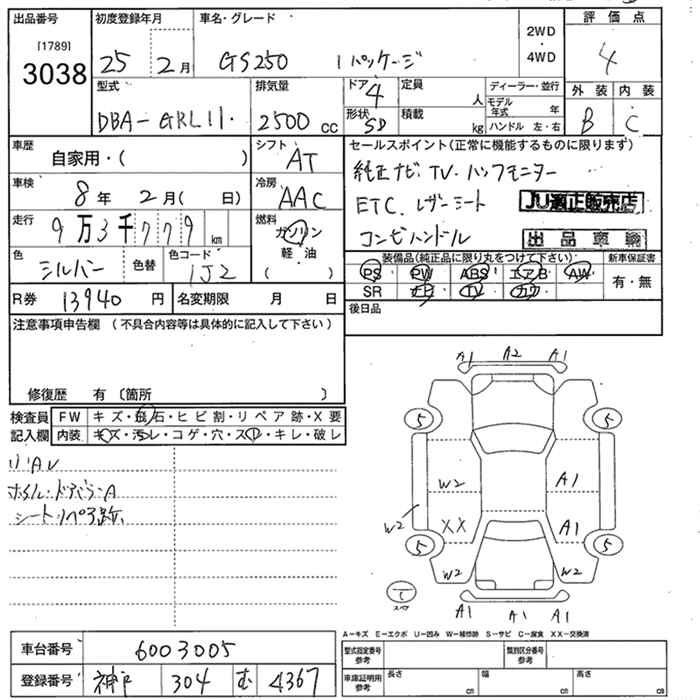 出品番号 初度登録年月 車名・グレード 評価点
[1789]
3038
25 2月 GS250 Iパッケージ 2WD・4WD 4
型式 排気量 ドア 4 定員 人 ディーラー・並行 外装 内装
DBA-GRL11. 2500cc 形状 SD 積載 kg モデル年式 年 ハンドル 左・右 B C
車歴 シフト セールスポイント(正常に機能するものに限ります)
自家用・( ) AT 純正ナビ TV・バックモニター
車検 8年 2月( 日) 冷房 AAC ETC. レザーシート JU適正販売店
走行 9万3千779km 燃料 ガソリン コンビハンドル 出品車輌
軽油
( )
色 シルバー 色替 色コード 1J2
装備品(純正品に限り丸をつけて下さい) 新車保証書
PS PW ABS エアB AW 有・無
SR ナビ TV カワ
R券 13940円 名変期限 月 日 後日品
注意事項申告欄 (不具合内容等は具体的に記入して下さい)
修復歴 有 〔箇所 〕
検査員 FW キズ・飛石・ヒビ割・リペア跡・X要
記入欄 内装 キズ・汚レ・コゲ・穴・スレ・キレ・破レ
ホイル・ドアバラ-A
シート・リペア跡
A1 A2 A1
5 5
W2 A1
W2 XX A1
5 5
W2 W2
A1 A1 A1
A-キズ E-エクボ U-凹み W-補修跡 S-サビ C-腐食 XX-交換済
車台番号 6003005
型式指定番号 参考 類別区分番号 参考
登録番号 神戸 304 む 4367
車庫証明用 参考 長さ cm 幅 cm 高さ cm